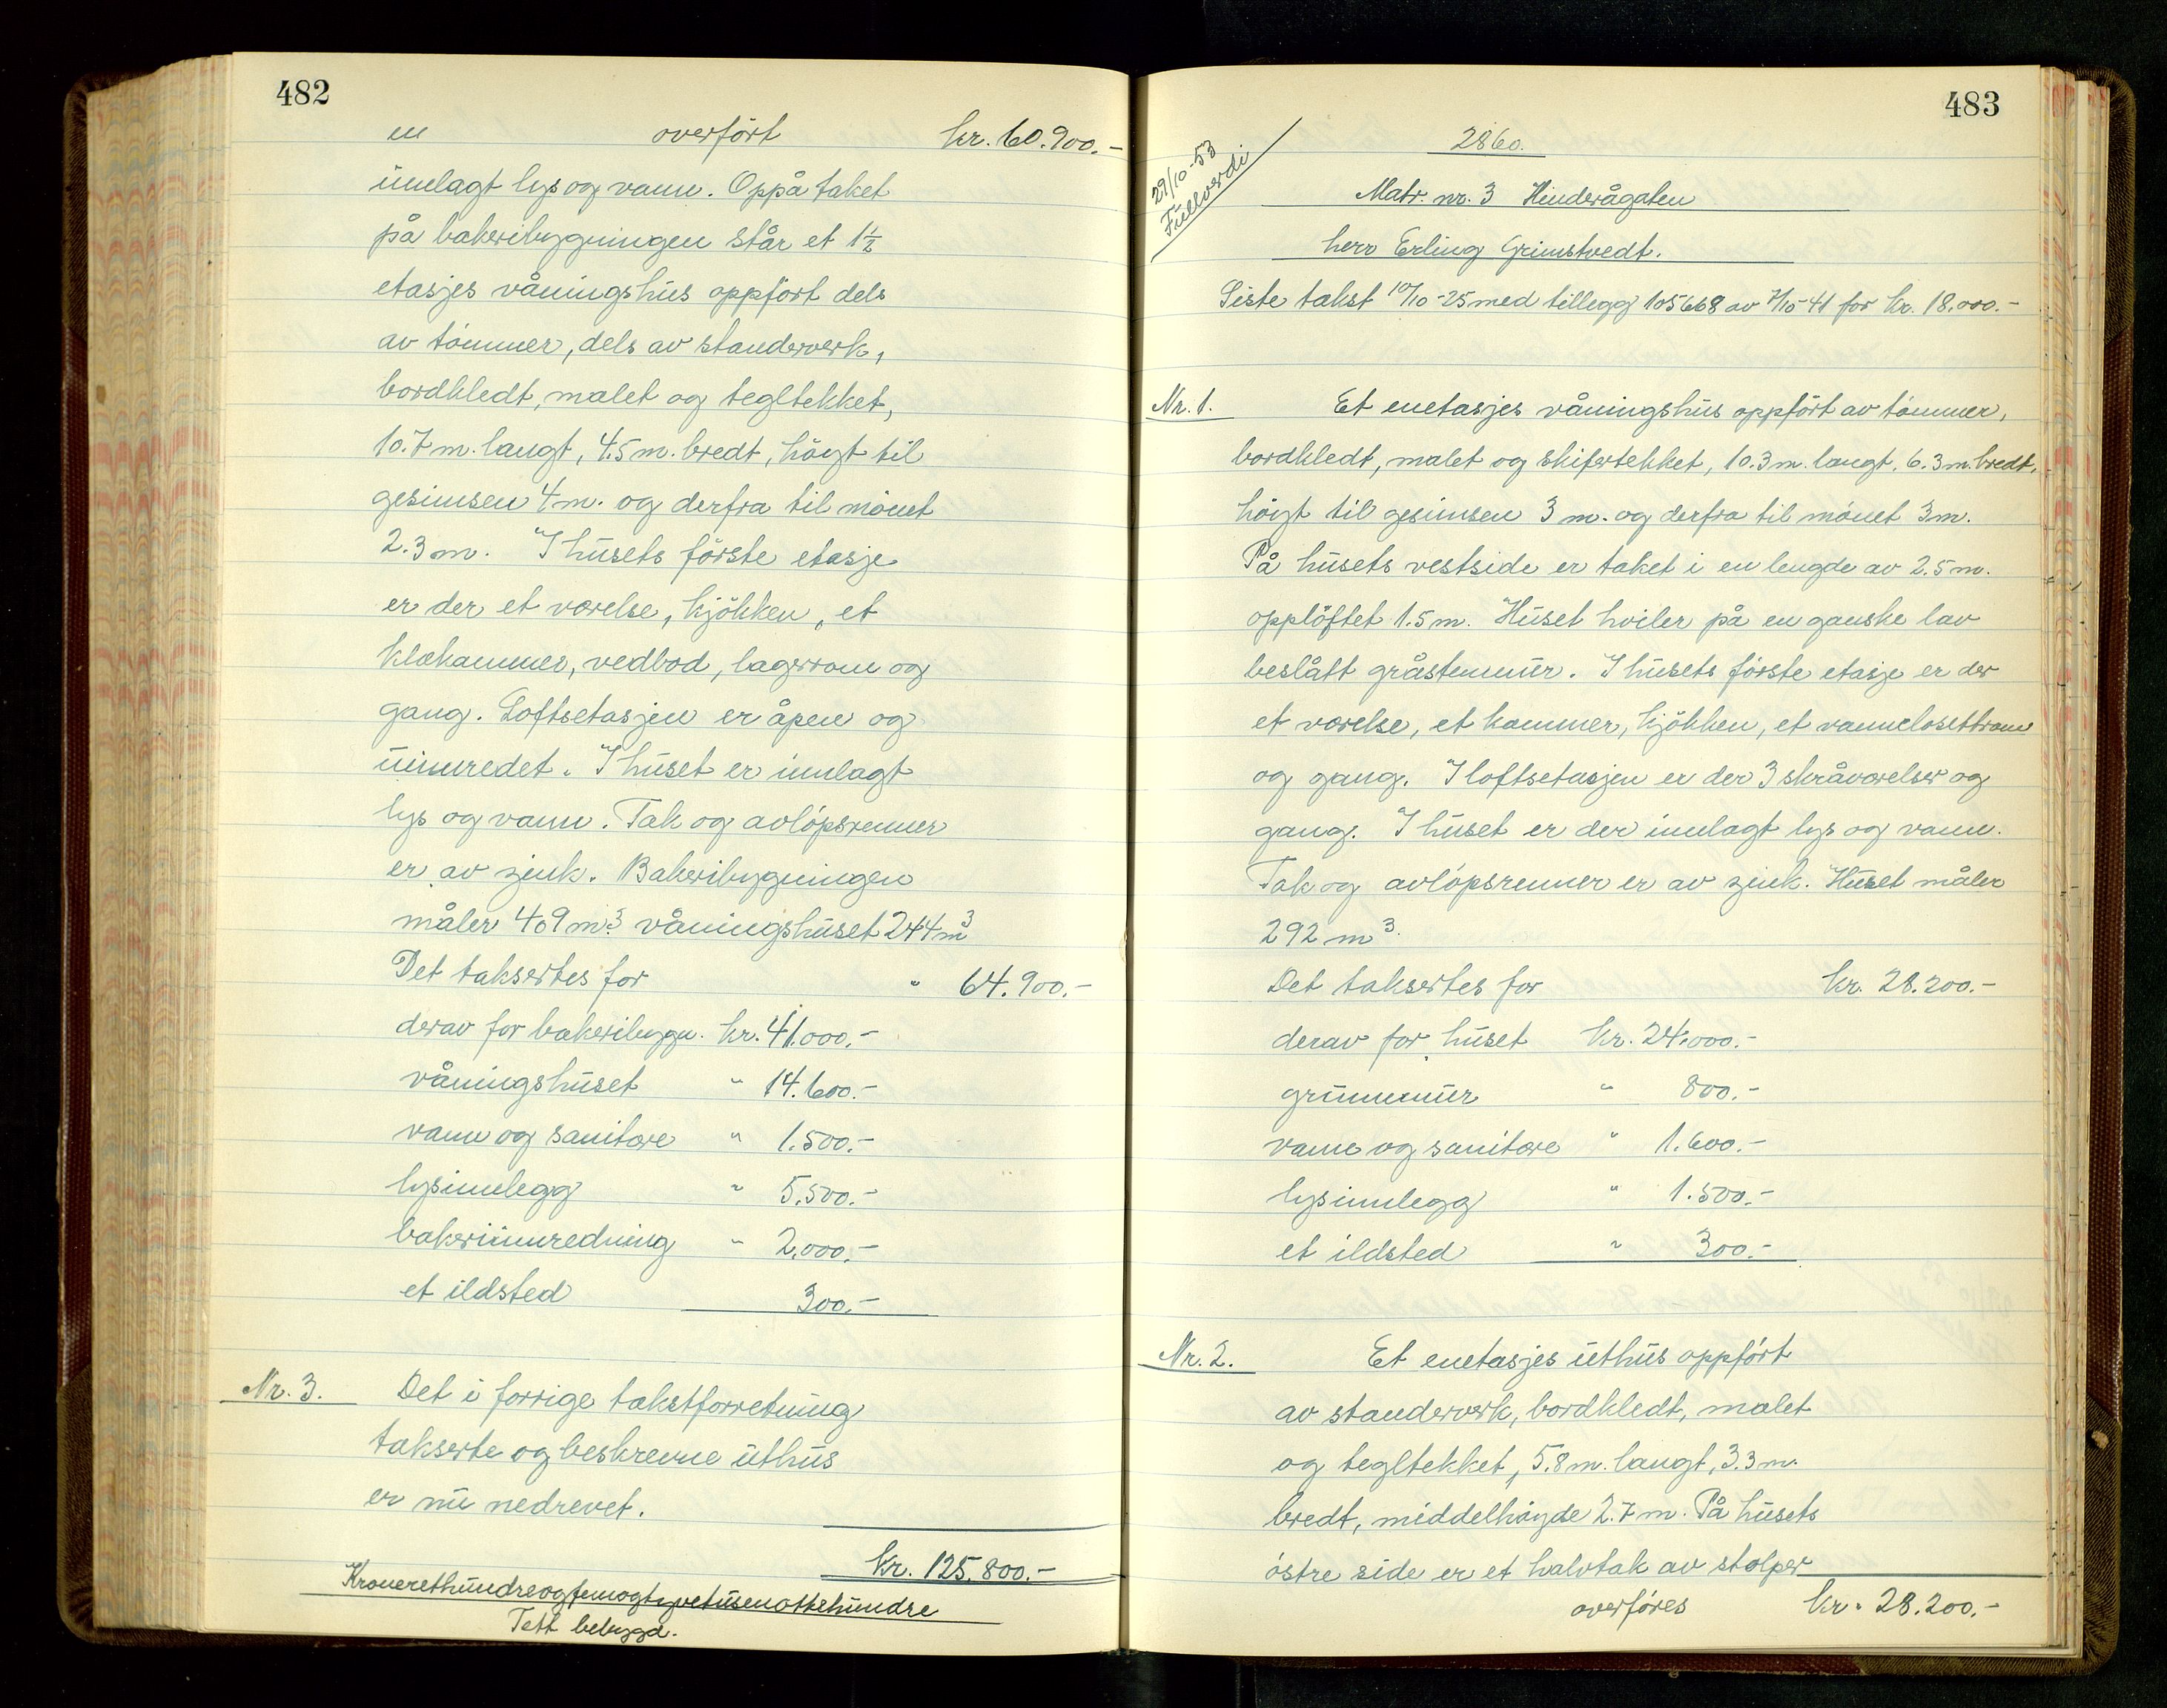 482
overført kr. 60.900.-
innlagt lys og vann. Oppå taket
på bakeribygningen står et 1½
etasjes våningshus oppført dels
av tømmer, dels av standerverk,
bordkledt, malet og tegltekket,
10.7 m. langt, 4.5 m. bredt, høigt til
gesimsen 4 m. og derfra til mønet
2.3 m. I husets første etasje
er der et værelse, kjøkken, et
klækammer, vedbod, lagerrom og
gang. Loftsetasjen er åpen og
uinnredet. I huset er innlagt
lys og vann. Tak og avløpsrenner
er av zink. Bakeribygningen
måler 409 m³. våningshuset 244 m³
Det taksertes for " 64.900.-
derav for bakeribygn. kr. 41.000.-
våningshuset " 14.600.-
vann og sanitære " 1.500.-
lysinnlegg " 5.500.-
bakeriinnredning " 2.000.-
et ildsted 300.-
Nr. 3. Det i forrige takstforretning
takserte og beskrevne uthus
er nu nedrevet.
kr. 125.800.-
Kroneretthundreogfemogtyvetusenottehundre
Tett bebygd.
483
29/10-53
Fullverdi
2860.
Matr. nr. 3 Hinderågaten
herr Erling Grimstvedt.
Siste takst 10/10-25 med tillegg 105668 av 7/10-41 for kr. 18.000.-
Nr. 1. Et enetasjes våningshus oppført av tømmer,
bordkledt, malet og skifertekket, 10.3 m. langt, 6.3 m. bredt,
høigt til gesimsen 3 m. og derfra til mønet 3 m.
På husets vestside er taket i en lengde av 2.5 m.
oppløftet 1.5 m. Huset hviler på en ganske lav
beslått gråstenmur. I husets første etasje er der
et værelse, et kammer, kjøkken, et vannclosettrom
og gang. I loftsetasjen er der 3 skråværelser og
gang. I huset er der innlagt lys og vann.
Tak og avløpsrenner er av zink. Huset måler
292 m³.
Det taksertes for kr. 28.200.-
derav for huset kr. 24.000.-
grunnmur " 800.-
vann og sanitære " 1.600.-
lysinnlegg " 1.500.-
et ildsted " 300.-
Nr. 2. Et enetasjes uthus oppført
av standerverk, bordkledt, malet
og tegltekket, 5.8 m. langt, 3.3 m.
bredt, middelhøyde 2.7 m. På husets
østre side er et halvtak av stolper
overføres kr. 28.200.-